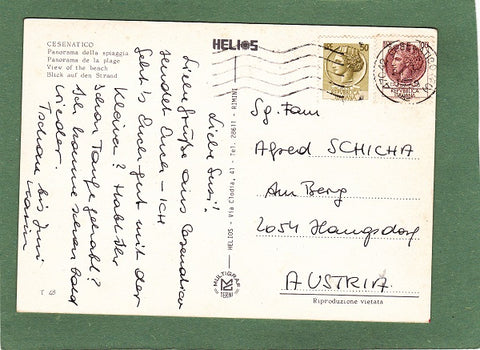 CESENATICO
Panorama della spiaggia
Panorama de la plage
View of the beach
Blick auf den Strand
HELIOS
Liebe Susi!
Liebe Grüße aus Cesenatico
sendet Euch – ICH
Geht's Euch gut mit der
Kleinen? Habt Ihr
schon Taufe gehabt?
Ich komme schon bald
wieder.
Tschau bis Juni
HELIOS - Via Clodia, 41 - Tel. 28611 - RIMINI
MULTIGRAF
TERNI
50
Sg. Fam
Alfred SCHICHA
Am Berg
2054 Haugsdorf
AUSTRIA
Riproduzione vietata
T 68